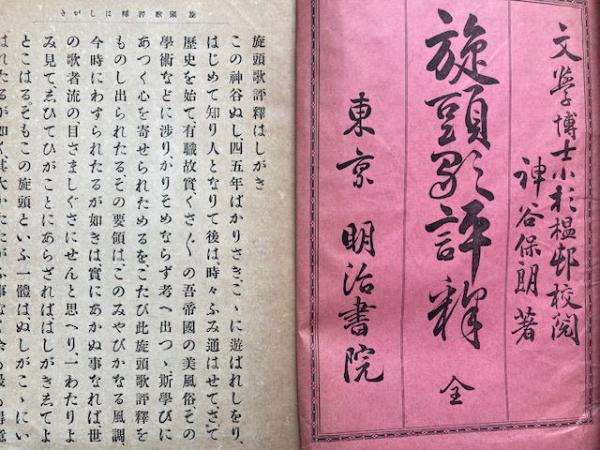 文學博士小杉榲邨校閲
神谷保朗著
旋頭歌評釋 全
東京 明治書院
旋頭歌評釋はしがき
旋頭歌評釋はしがき
この神谷ぬし、四五年ばかりさき、こゝに遊ばれしをり、
はじめて知り人となりて後は、時々ふみ通はせて、
歷史を始て有職故實、くさ〴〵の吾帝國の美風俗、その
學術などに渉り、かりそめならず考へ出つゝ、斯學びに
あつく心を寄せられためるを、こたび此旋頭歌評釋を
ものし出られたるその要領は、このみやびかなる風調、
今時にわずられたるが如きは實にあかぬ事なれば、世
の歌者流の、目さましぐさにせんと思へり、一わたりよ
み見てゑひてひがことにあらざればはしがきゑてよ
とこはる。そもこの旋頭といふ一體は、ぬしがこゝにい
はれたるが如く其大かた